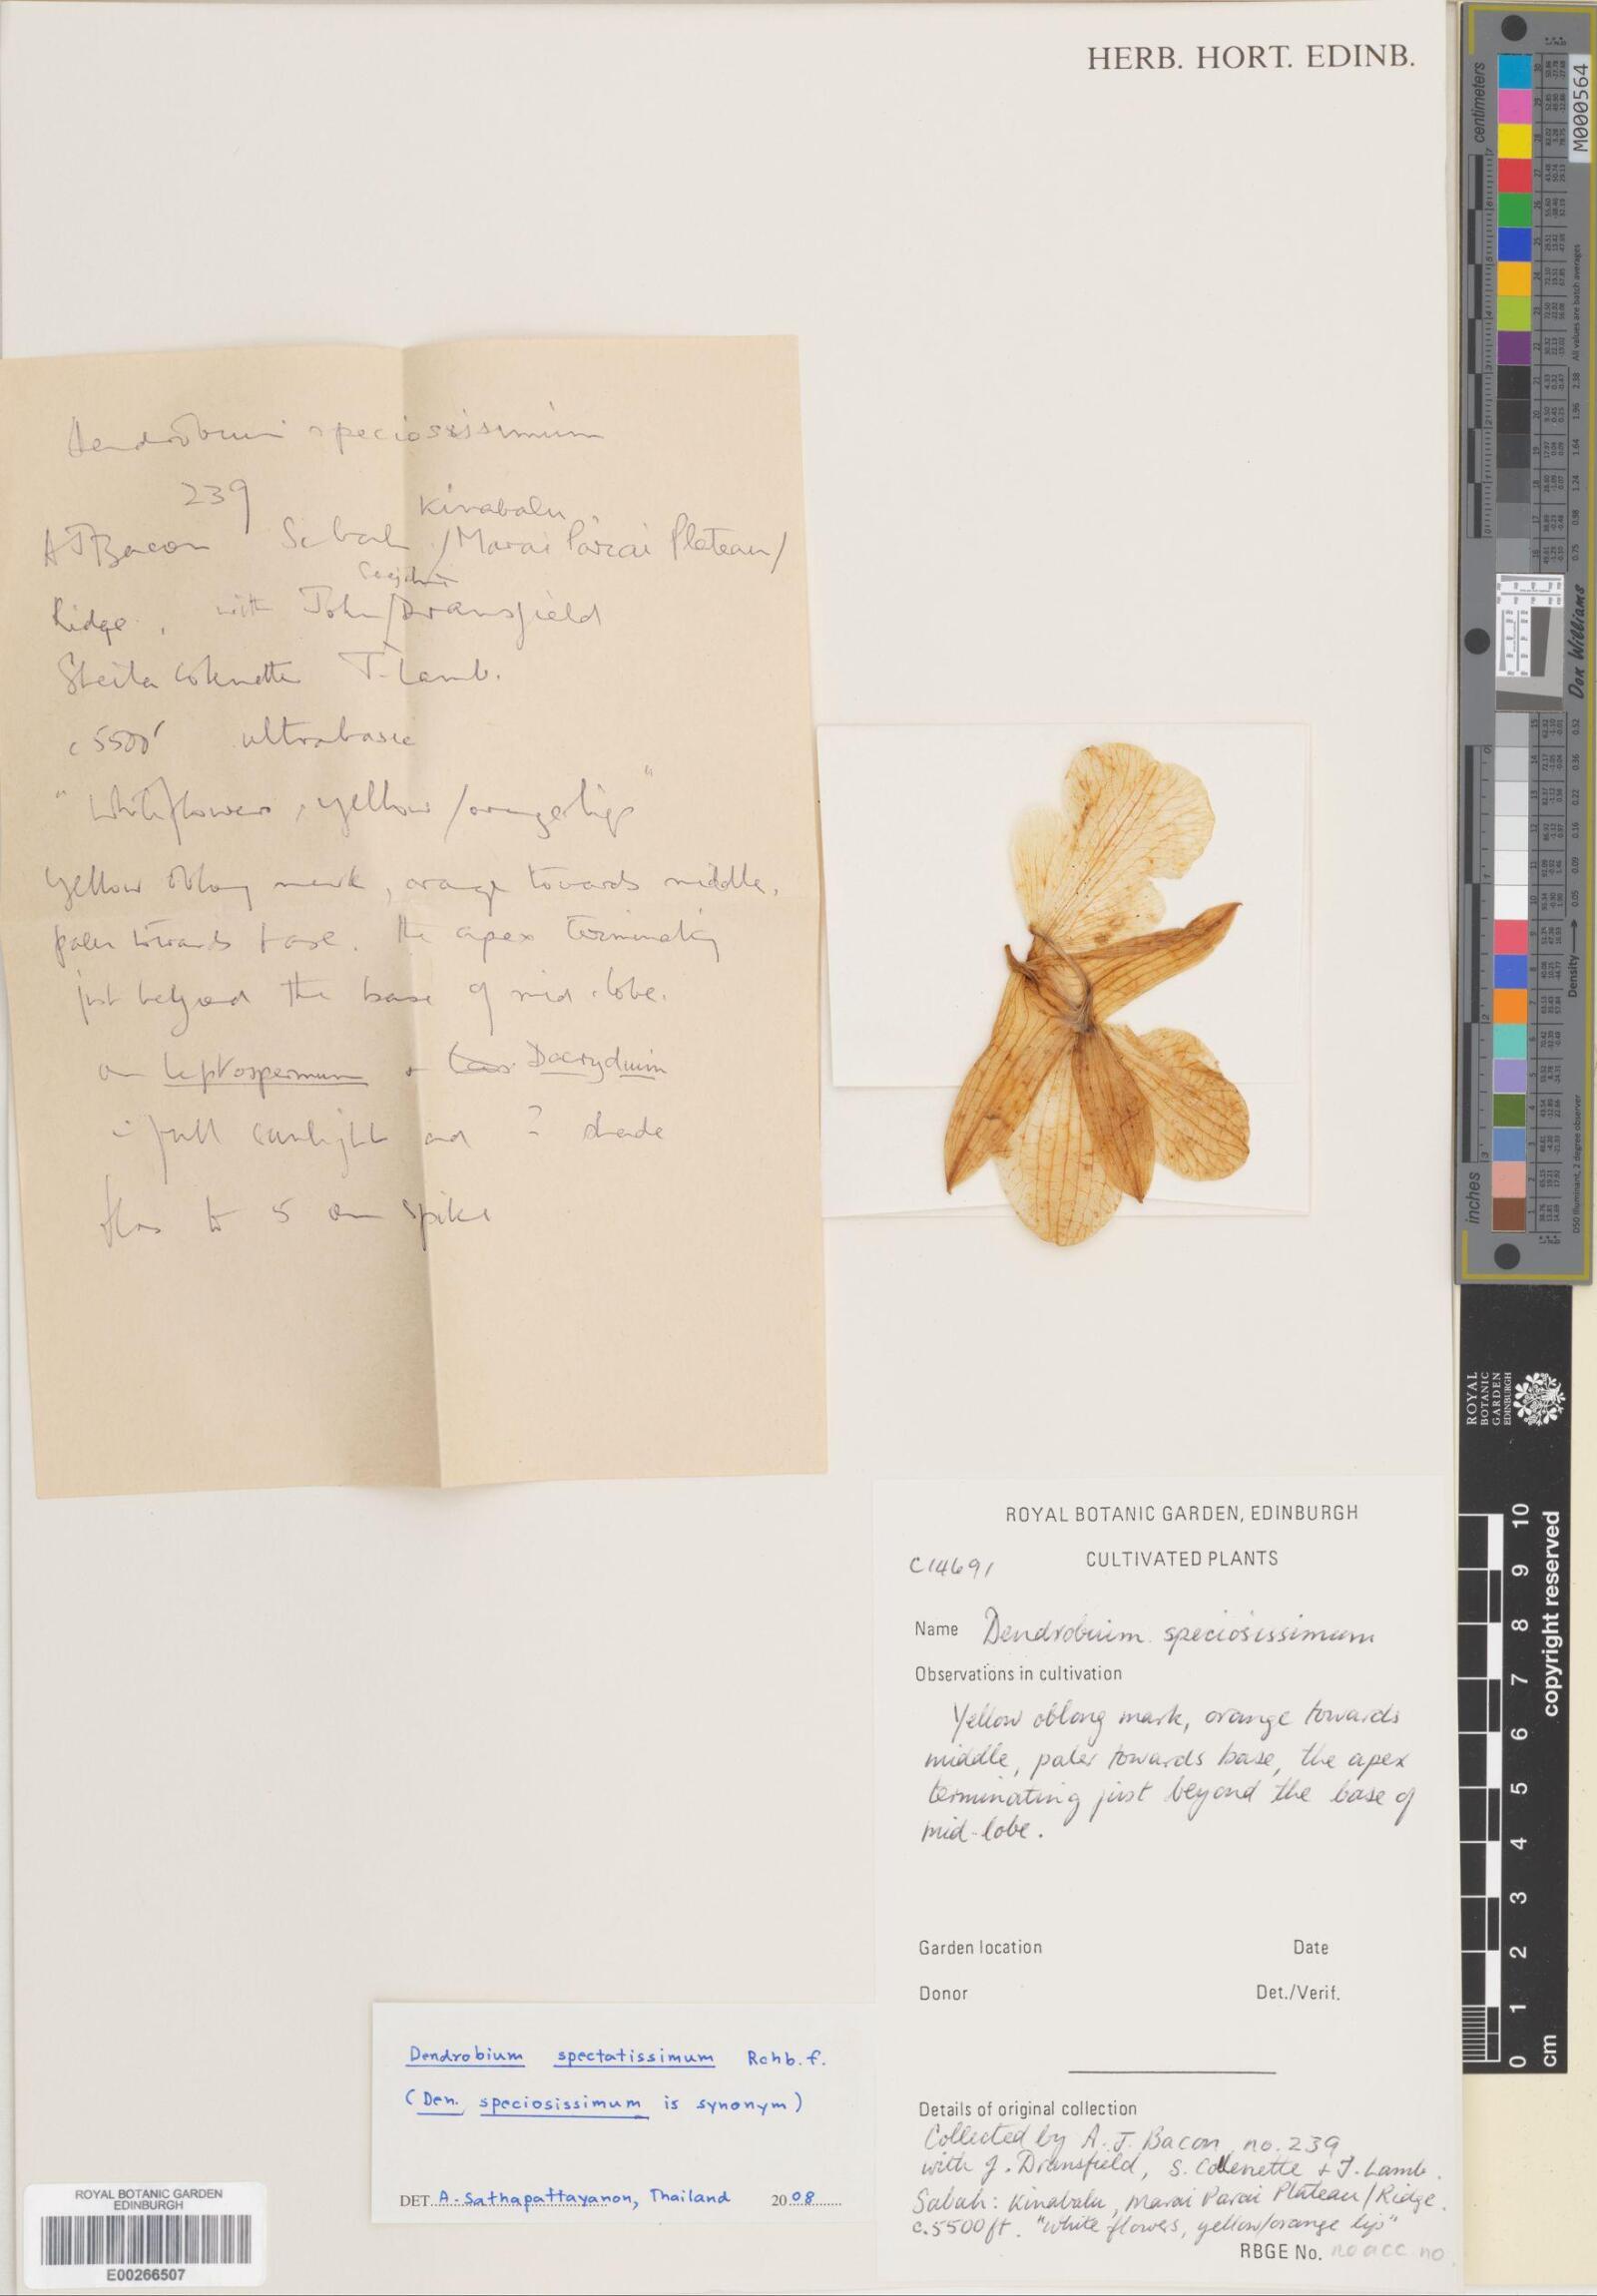 HERB. HORT. EDINB.
Dendrobium speciosissimum
239
Kinabalu,
A J Bacon Sabah /Marai Parai Plateau/
Ridge, with John/Dransfield
Sheila Collenette T. Lamb.
c 5500' ultrabasic
"White flowers, yellow/orange lip"
Yellow oblong mark, orange towards middle,
paler towards base. the apex terminating
just beyond the base of mid-lobe.
on Leptospermum + Dacrydium
in full sunlight and ? shade
flos to 5 on spike
ROYAL BOTANIC GARDEN, EDINBURGH
CULTIVATED PLANTS
C14691
Name Dendrobium speciosissimum
Observations in cultivation
Yellow oblong mark, orange towards
middle, paler towards base, the apex
terminating just beyond the base of
mid-lobe.
Garden location Date
Donor Det./Verif.
Details of original collection
Collected by A. J. Bacon no. 239
with J. Dransfield, S. Collenette + T. Lamb.
Sabah: Kinabalu, Marai Parai Plateau/Ridge.
c.5500ft. "White flowers, yellow/orange lip"
RBGE No. no acc. no.
Dendrobium spectatissimum Rchb. f.
(Den. speciosissimum is synonym)
DET. A. Sathapattayanon, Thailand 2008
ROYAL BOTANIC GARDEN
EDINBURGH
E00266507
centimeters
M000564
All values are batch averages
Don Williams
Density
inches
D50 Illuminant, 2 degree observer
ROYAL
BOTANIC
GARDEN
EDINBURGH
copyright reserved
10
9
8
7
6
5
4
3
2
1
0
cm